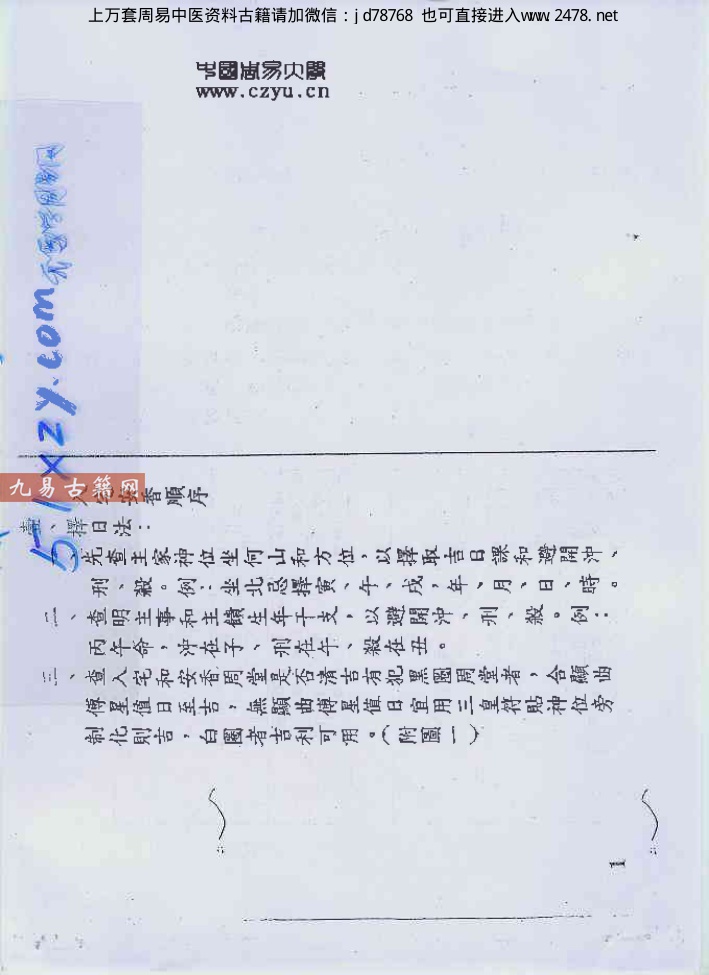 上万套周易中医资料古籍请加微信：jd78768 也可直接进入www.2478.net
中國周易大學
www.czyu.cn
51xzy.com
九易古籍网
入宅安香順序
壹、擇日法：
一、先查主家神位坐何山和方位，以擇取吉日課和避開沖、
刑、殺。例：坐北忌擇寅、午、戌，年、月、日、時。
二、查明主事和主饋生年干支，以避開沖、刑、殺。例：
丙午命，沖在子、刑在午、殺在丑。
三、查入宅和安香周堂是否清吉有犯黑圈周堂者，合顯曲
傅星值日至吉，無顯曲傅星值日宜用三皇符貼神位旁
制化則吉，白圈者吉利可用。（附圖一）
1